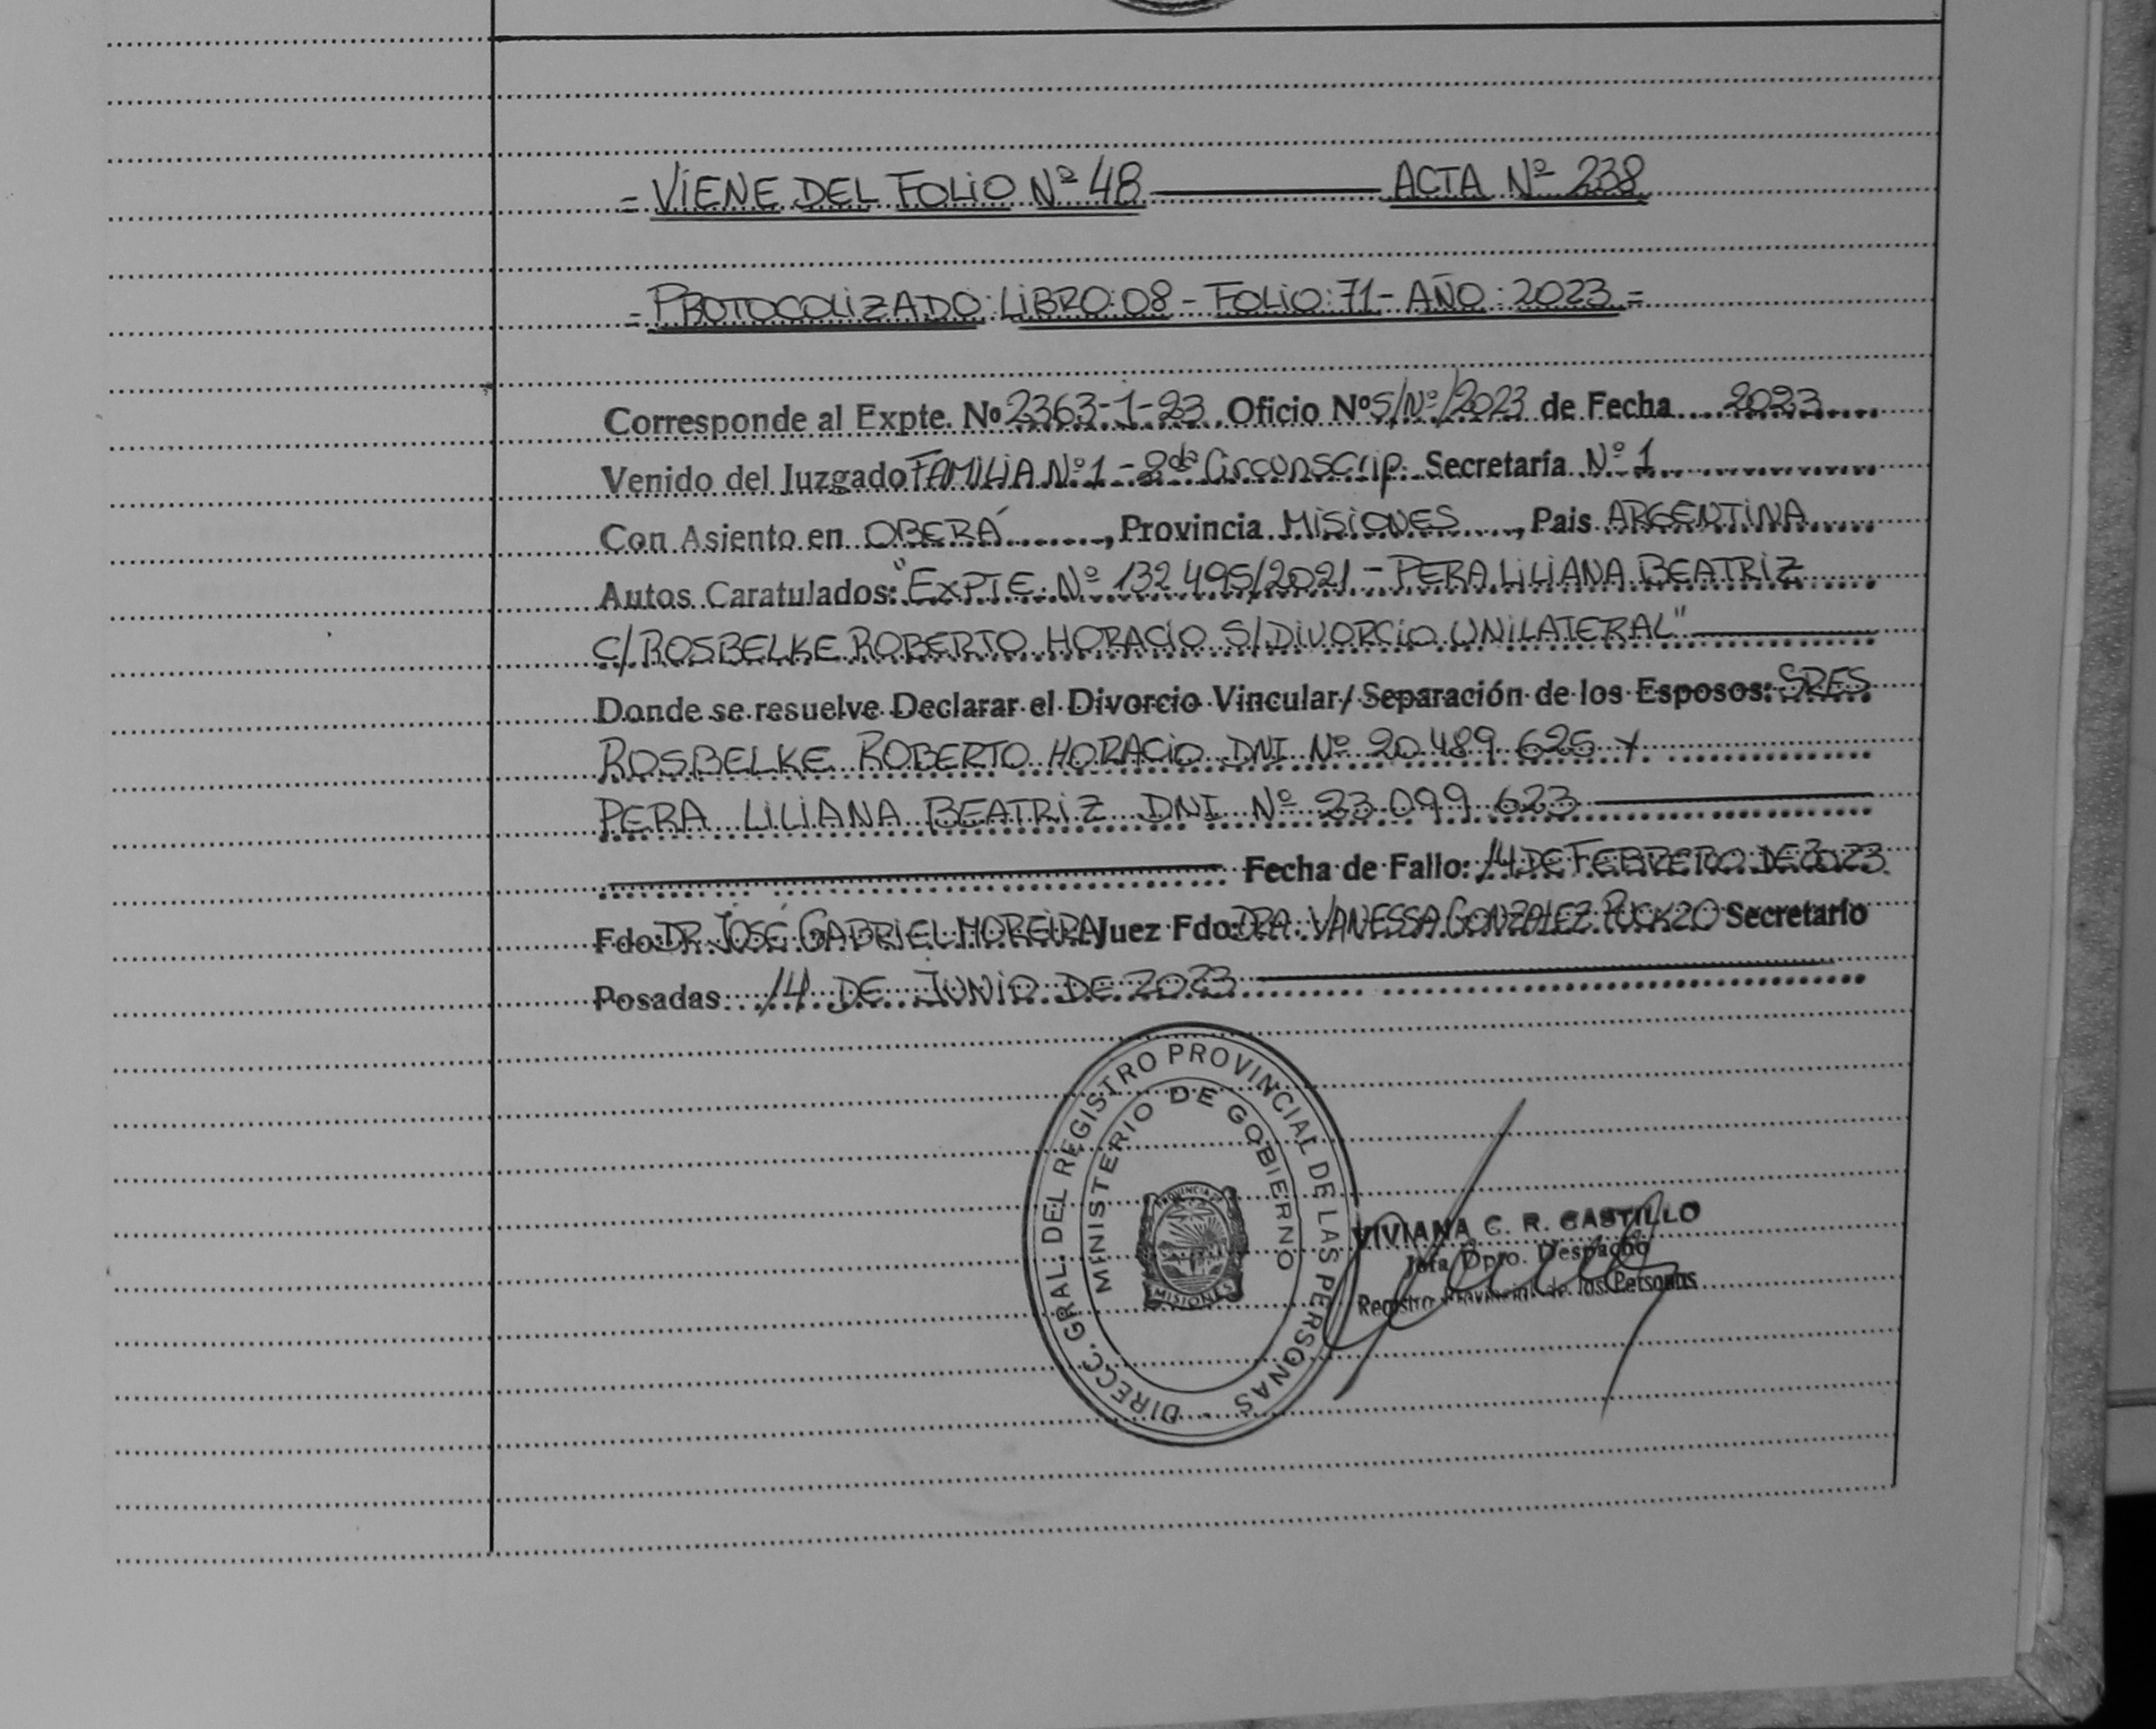 = VIENE DEL FOLIO Nº 48 ——— ACTA Nº 238
= PROTOCOLIZADO: LIBRO: 08 - FOLIO: 71 - AÑO: 2023 =
Corresponde al Expte. Nº 2363-1-23 Oficio Nº S/Nº/2023 de Fecha 2023
Venido del Juzgado FAMILIA Nº 1 - 2da Circunscrip. Secretaría Nº 1
Con Asiento en OBERÁ, Provincia MISIONES, Pais ARGENTINA
Autos Caratulados: "EXPTE. Nº 132495/2021 - PERA LILIANA BEATRIZ
C/ ROSBELKE ROBERTO HORACIO S/ DIVORCIO UNILATERAL"
Donde se resuelve Declarar el Divorcio Vincular/ Separación de los Esposos: SRES
ROSBELKE ROBERTO HORACIO DNI Nº 20.489.625 Y
PERA LILIANA BEATRIZ DNI Nº 23.099.623
Fecha de Fallo: 14 DE FEBRERO DE 2023
Fdo: DR. JOSÉ GABRIEL MOREIRA Juez Fdo: DRA. VANESSA GONZALEZ Secretario
Posadas: 14 DE JUNIO DE 2023
DIRECC. GRAL. DEL REGISTRO PROVINCIAL DE LAS PERSONAS
MINISTERIO DE GOBIERNO
PROVINCIA DE
MISIONES
VIVIANA C. R. CASTILLO
Jefa Dpto. Despacho
Registro Provincial de las Personas